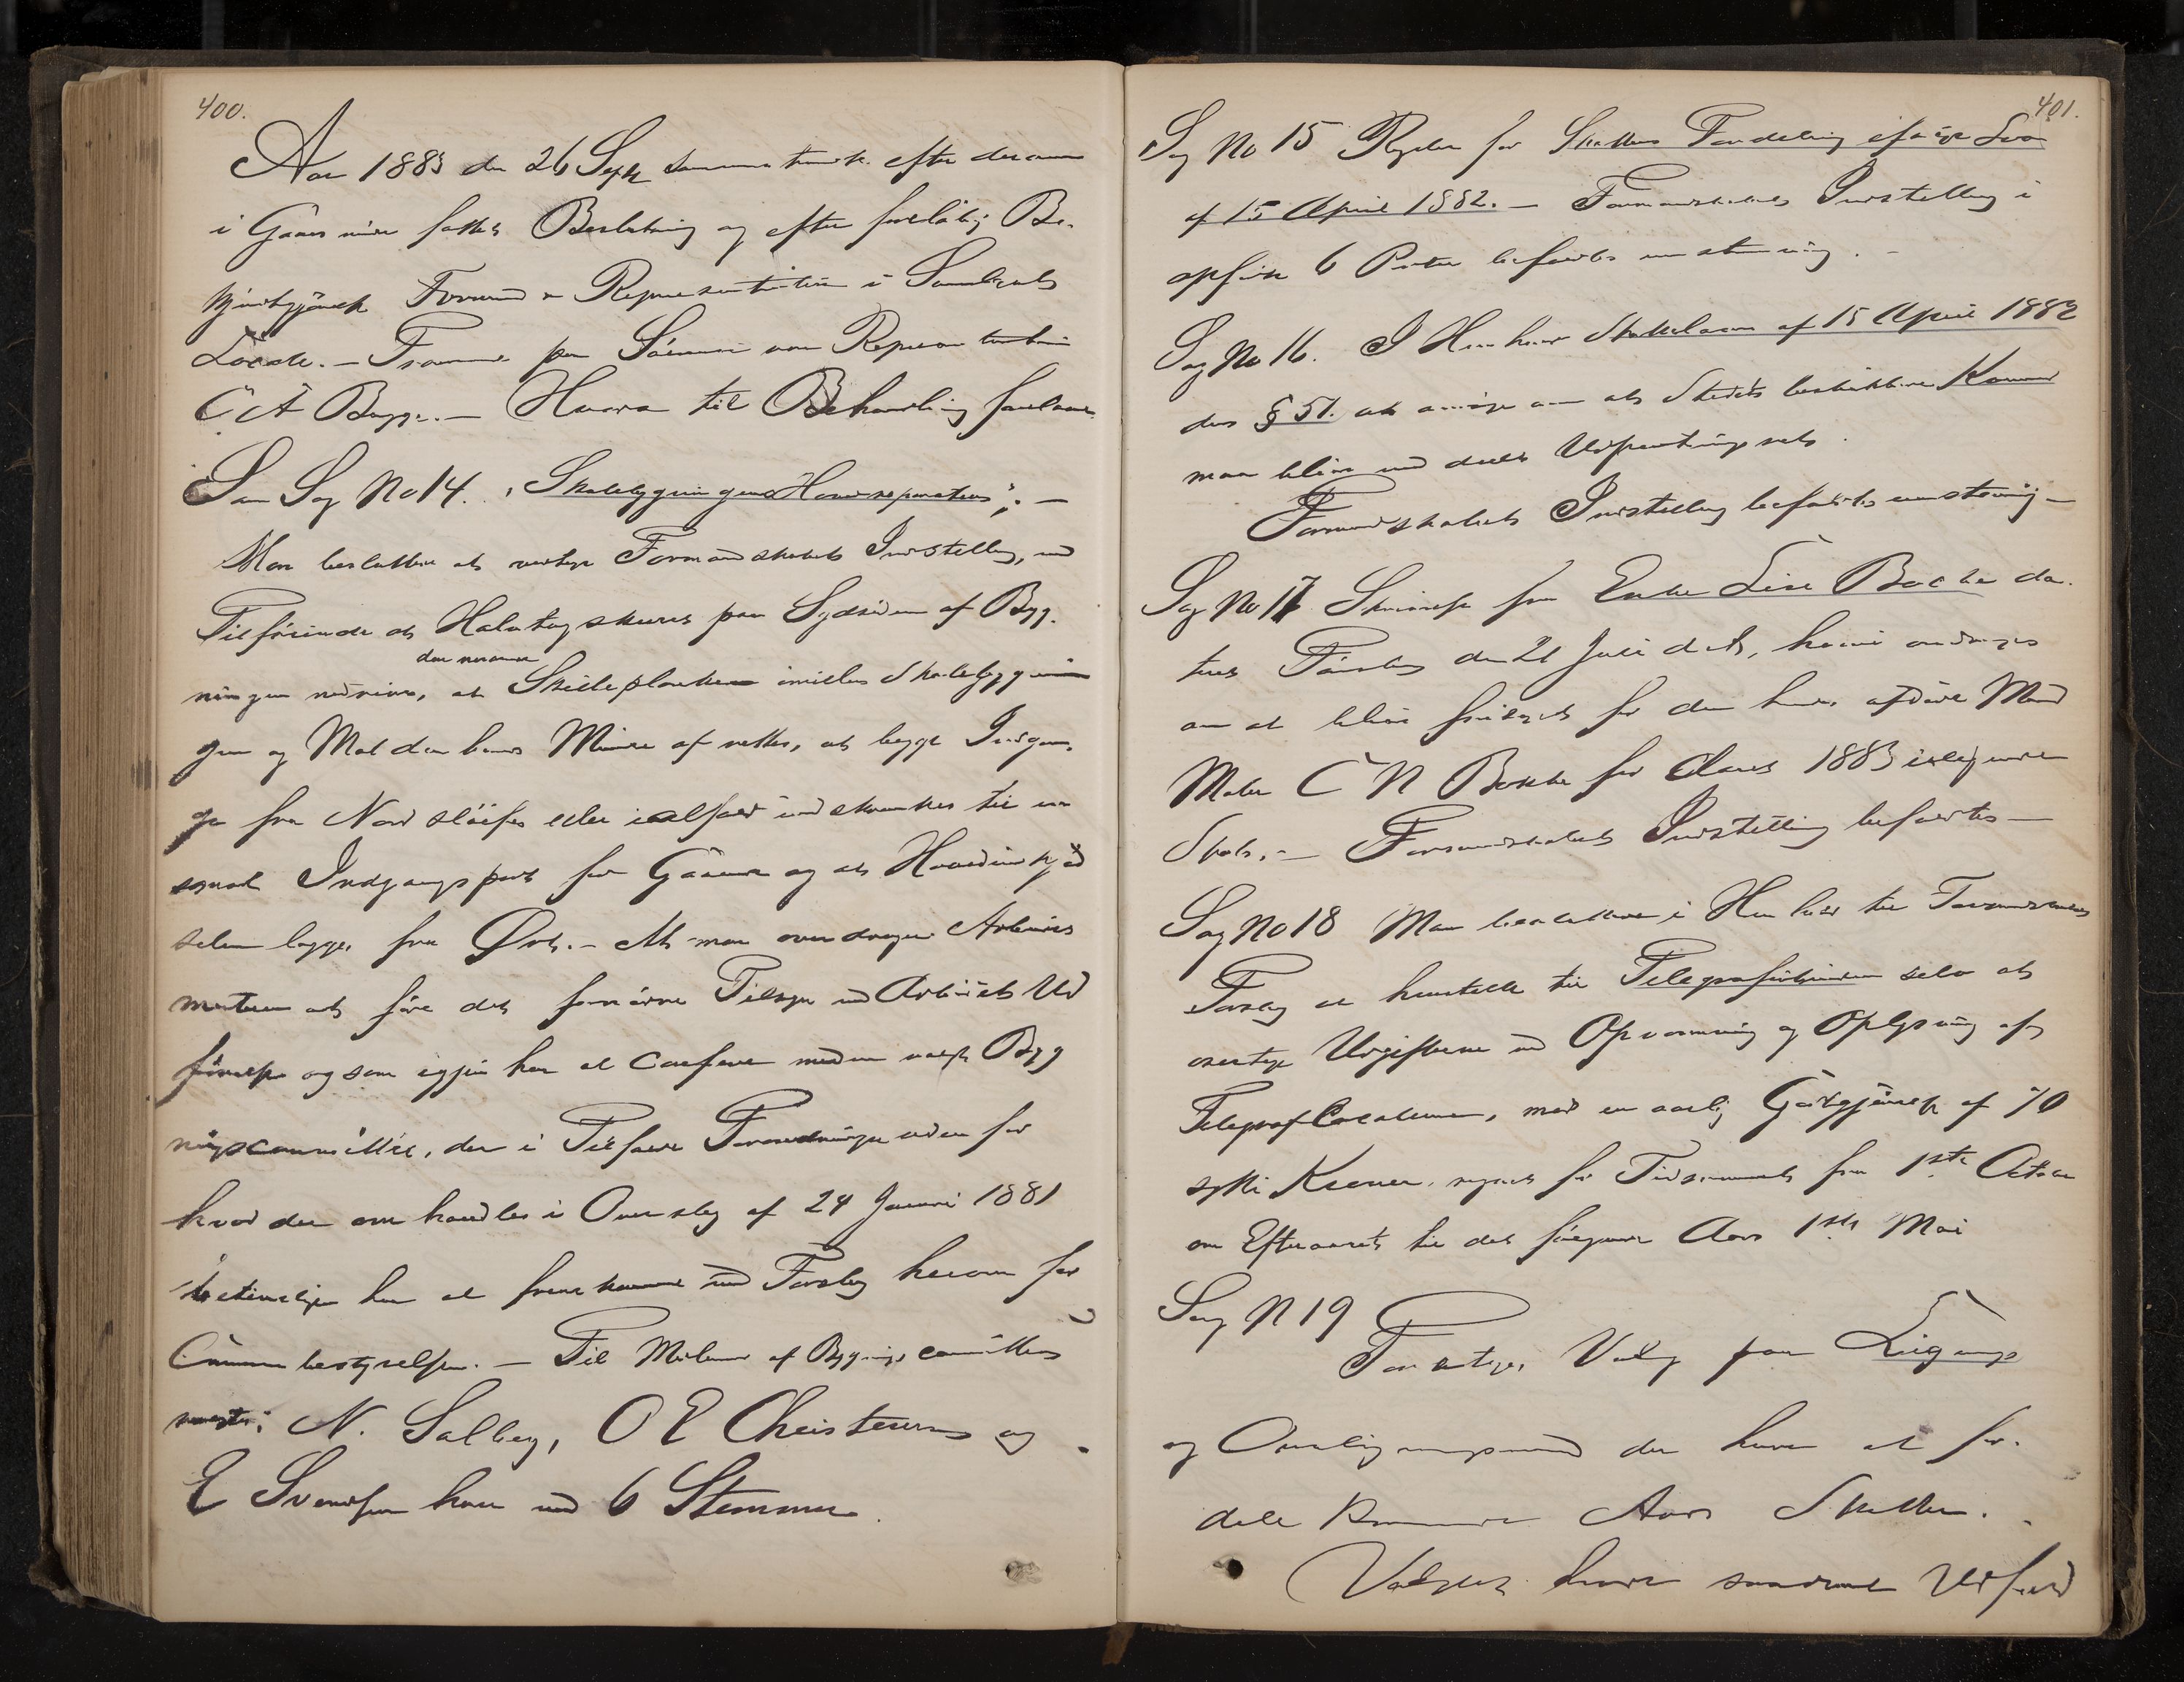 400.
Aar 1883 den 26 Septr sammentraadte efter derom
i Gaar fattet Beslutning og efter foreløbig Be-
kjendtgjørelse Formand & Repræsentation i Sambergets
Locale. – Fra var Repræsentant
C A Bugge. – Hvorda til Behandling forelaae
Som Sag No 14. "Skolebygningens Hovedreparation". –
Man besluttede at vedtage Formandskabets Indstilling, med
Tilføiende at Halvtagskuret paa Sydsiden af Byg-
ningen nedrives, at Skilleplanken imellem Skolebygnin
den nuværende
gen og Mal Minde afsættes, at begge Indgan-
ge fra Nord sløifes eller ialfald indskrænkes til en
smal Indgangsport for Gaaende og at Hovedindkjør
selen lægges fra Øst. – At man overdrager Arbeids
mesteren at føre det fornødne Tilsyn med Arbeidets Ud
førelse og som igjen har at conferere med en valgt Byg
ningscommitte, der i Tilfælde Foranstaltninger uden for
hvad der omhandles i Overslag af 24 Januri 1881
har at fremkomme med Forslag herom for
Communebestyrelsen. – Til Medlemmer af Bygningscommitteen
valgtes: N. Salberg, O E Christensen og
E Svendsen hver med 6 Stemmer.
401.
Sag No 15 Regler for Skattens Fordeling ifølge Lov
af 15 April 1882. – Formandskabets Indstilling i
opførte 6 Poster bifaldtes enstemmig. –
Sag No 16. I Henhold Skatteloven af 15 April 1882
dens § 51. at ansøge om at Stedets beskikkede Kæmner
maa blive meddelt Udpantningsret.
Formandskabets Indstilling bifaldtes enstemmig –
Sag No 17 Skrivelse fra Enke Lise Bache da-
teret Førstkl den 21 Juli d A, hvori andrages
om at blive fritaget for den hendes afdøde Mand
Maler C N Bache for Aaret 1883 ilignede
Skat. – Formandskabets Indstilling bifaldtes –
Sag No 18 Man besluttede i Henhold til Formandskabets
Forslag at henstille til Telegrafbestyreren selv at
overtage Udgifterne med Opvarmning og Oplysning af
Telegraf Localerne, mod en aarlig Godtgjørelse af 70
sytti Kroner, regnet for Tidsrummet fra 1ste October
om Efteraaret til det følgende Aars 1ste Mai
Sag N 19
Foretoges Valg paa Lignings
og Overligningsmænd der have at for-
dele kommende Aars Skatter.
Valget havde saadant Udfald